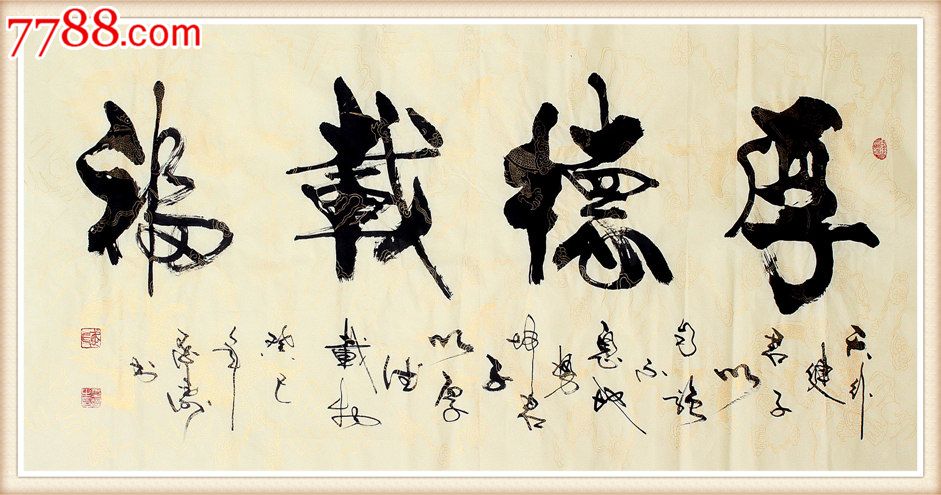 7788.com
厚德載福
天行
健
君子
以
自強
不
息地
势
坤君
子
以厚
德
載物
癸巳
年
书